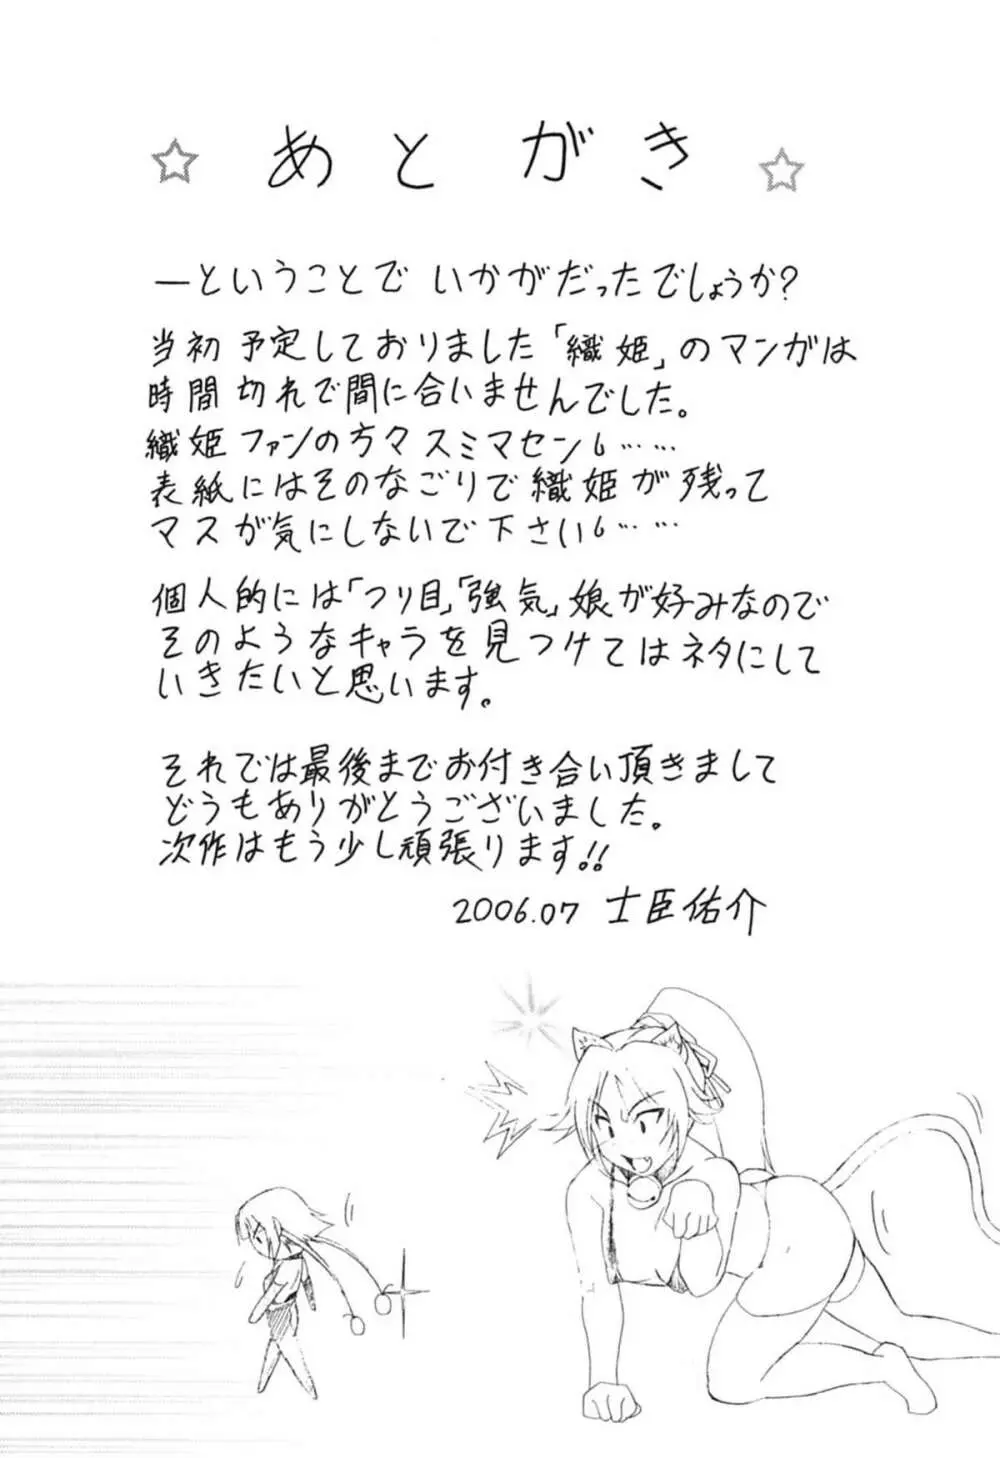 ☆ あとがき ☆
ーということで いかがだったでしょうか?
当初予定しておりました「織姫」のマンガは
時間切れで間に合いませんでした。
織姫ファンの方々スミマセン……
表紙にはそのなごりで織姫が残って
マスが気にしないで下さい……
個人的には「つり目」「強気」娘が好みなので
そのようなキャラを見つけてはネタにして
いきたいと思います。
それでは最後までお付き合い頂きまして
どうもありがとうございました。
次作はもう少し頑張ります!!
2006.07 士臣佑介